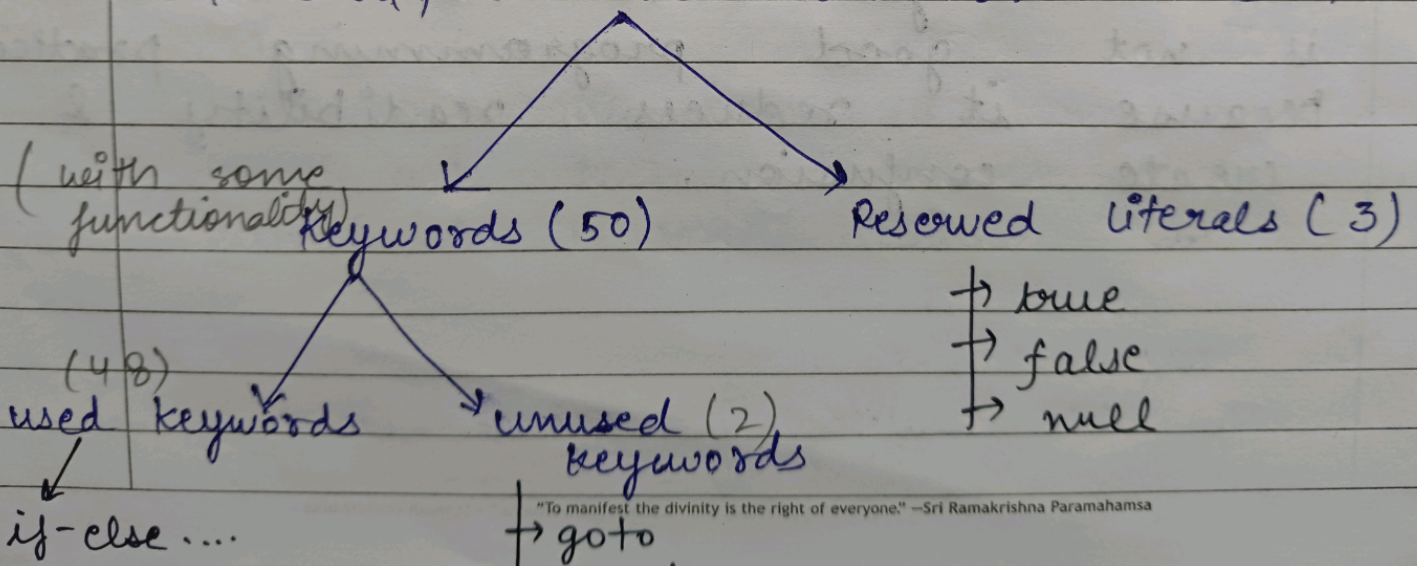 (with some
functionality)
Keywords (50)
Reserved Literals (3)
→ true
→ false
→ null
(48)
used keywords
unused (2)
keywords
"To manifest the divinity is the right of everyone." —Sri Ramakrishna Paramahamsa
if-else ....
→ goto